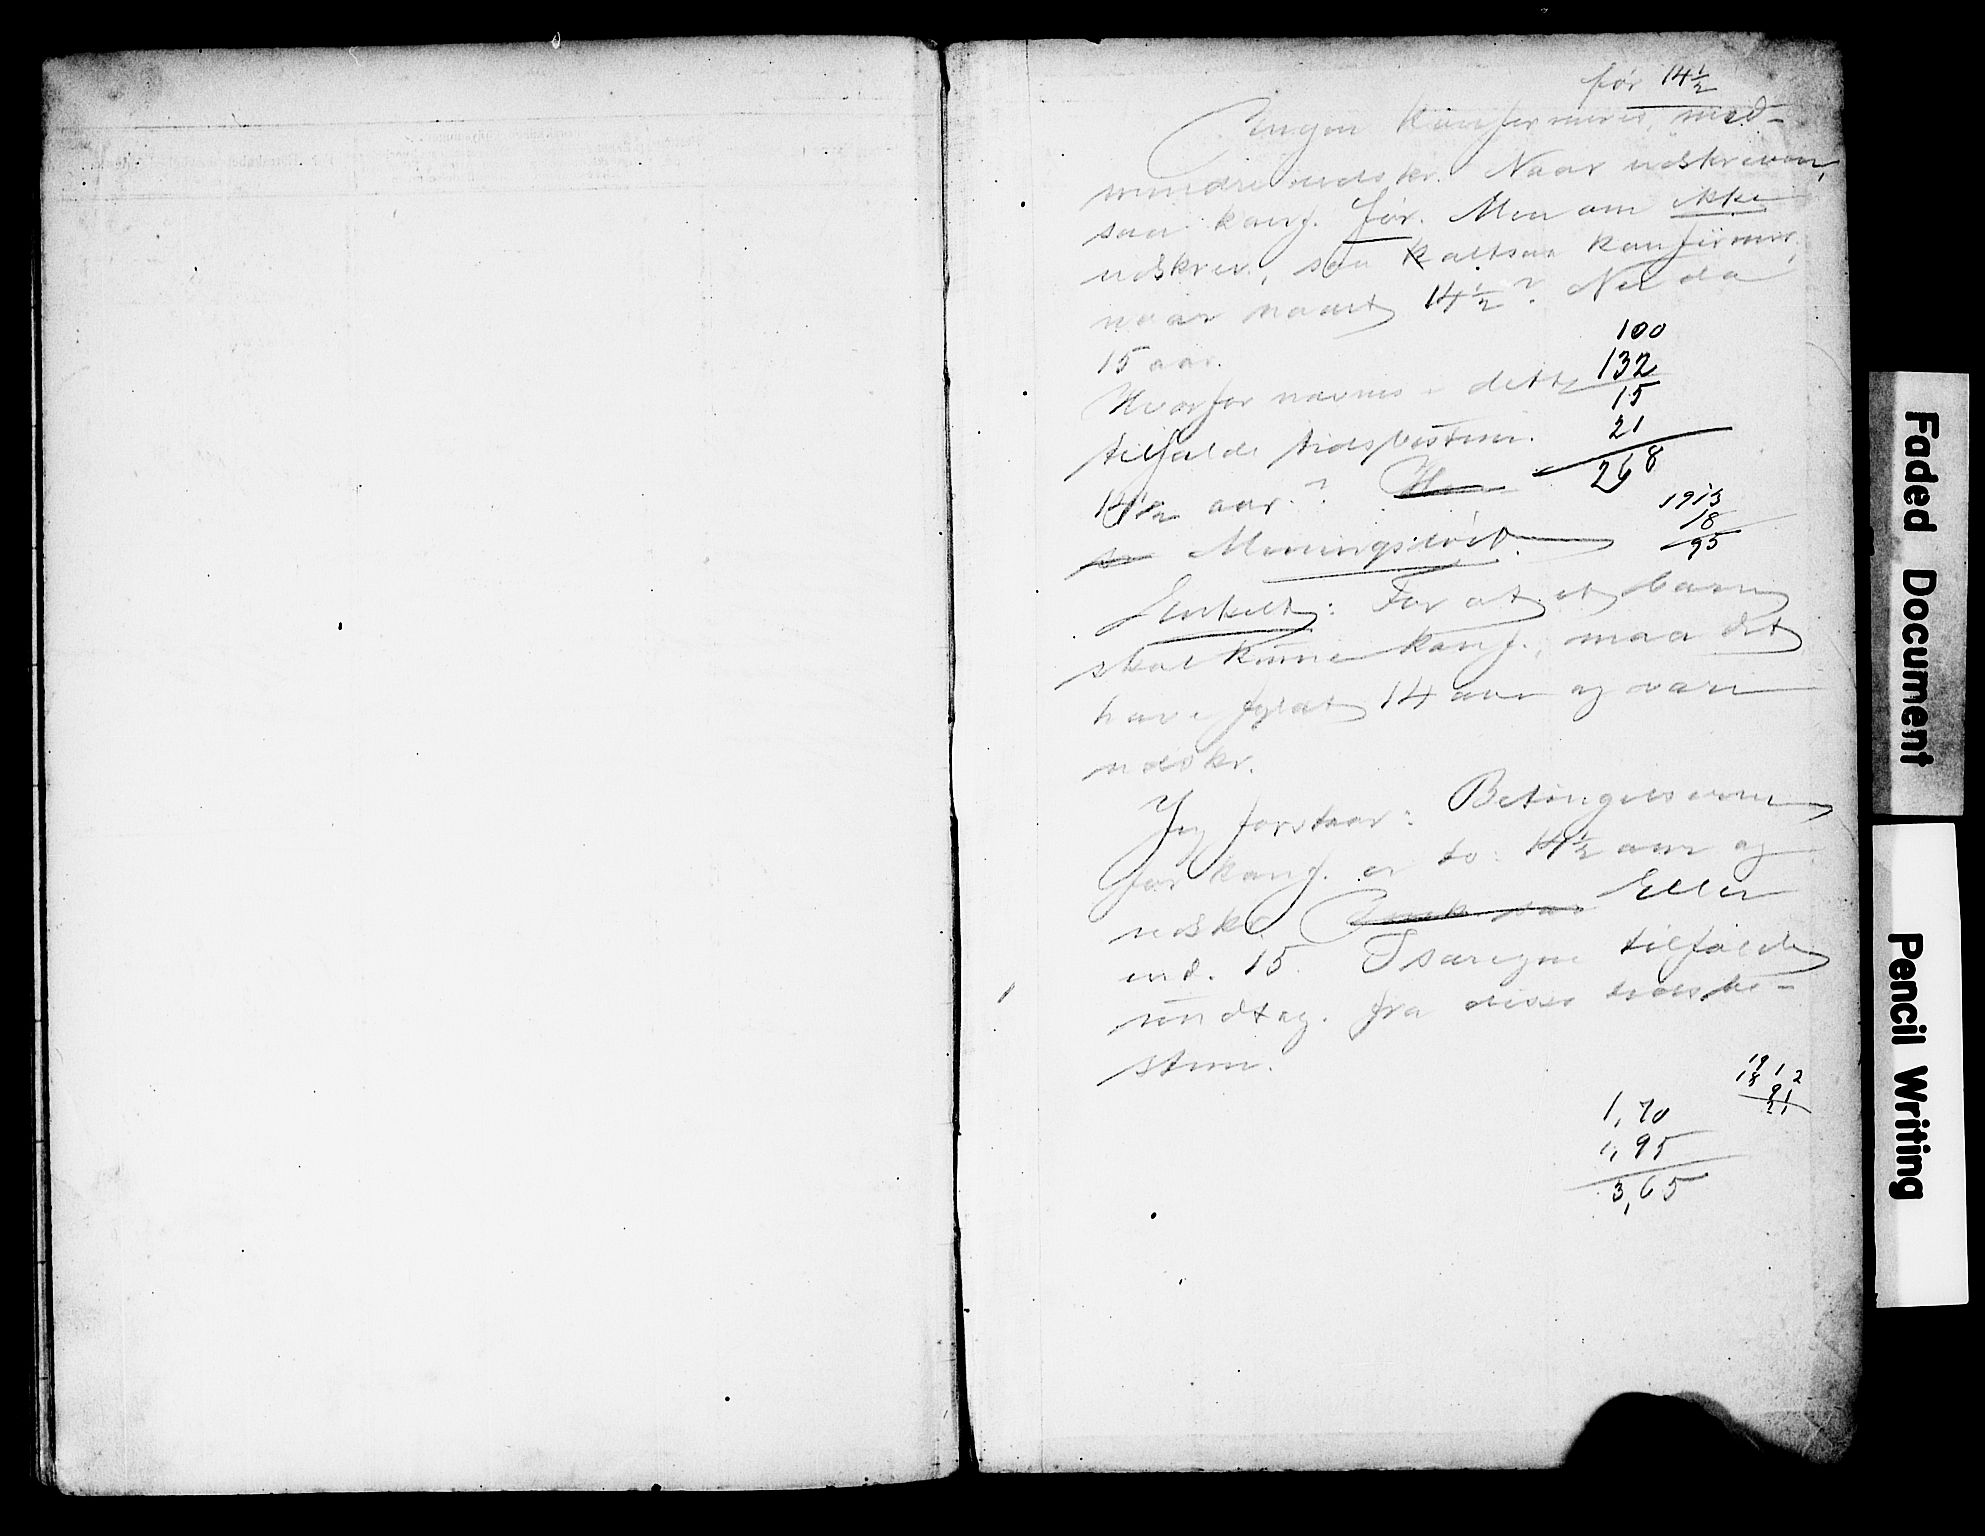 før 14½
Ingen konfirmeres, med-
mindre udskr. Naar udskreven,
saa konf. før. Men om ikke
udskrev., saa altsaa konfirmer.
naar naaet 14½? Nei da
15 aar.
Hvorfor nævnes i dette
tilfælde tidsbestem.
14½ aar.?
Meningsløst.
Enkelt: For at et barn
skal kunne konf., maa det
have fyldt 14 aar og være
udskr.
Jeg forstaar: Betingelserne
for konf. er to: 14½ aar og
udskr. Eller
end. 15. I særegne tilfælde
undtag. fra disse tidsbe-
stem.
100
132
15
21
268
1913
18
95
1912
18 91
21
1,70
1,95
3,65
Faded Document
Pencil Writing